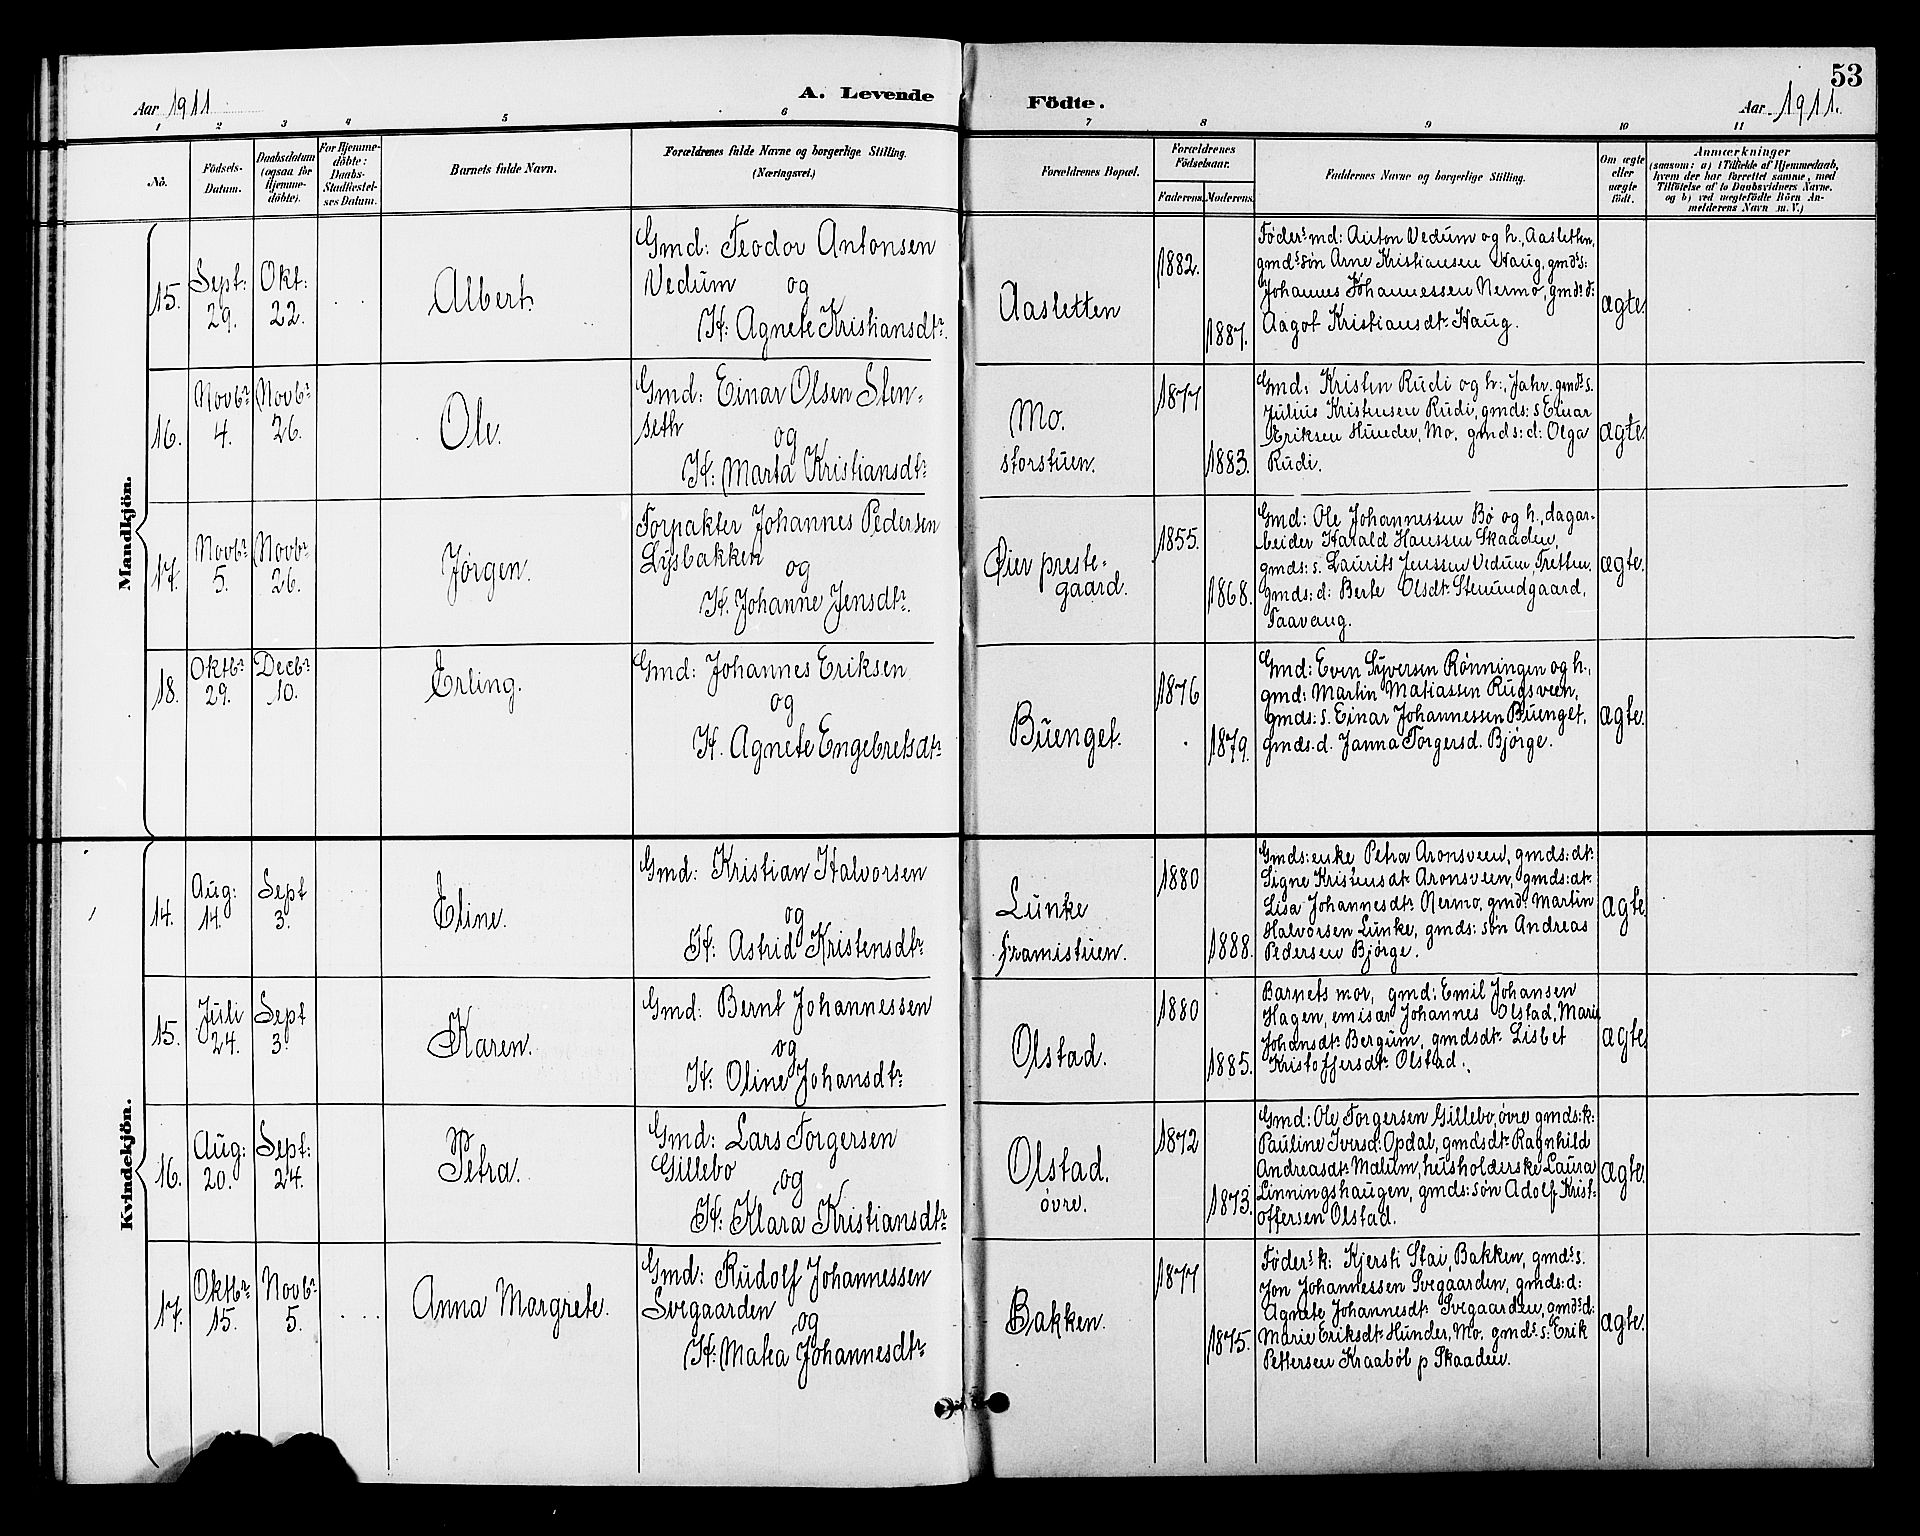 53
Aar 1911
A. Levende
Födte.
Aar 1911.
1 2 3 4 5 6 7 8 9 10 11
No.
Födsels-
Datum.
Daabsdatum
(ogsaa for
Hjemme-
döbte).
For Hjemme-
döbte:
Daabs-
Stadfæstel-
ses Datum.
Barnets fulde Navn.
Forældrenes fulde Navne og borgerlige Stilling.
(Næringsvei.)
Forældrenes Bopæl.
Forældrenes
Födselsaar.
Faderens. Moderens.
Faddernes Navne og borgerlige Stilling.
Om ægte
eller
uægte
födt.
Anmærkninger
(saasom: a) i Tilfælde af Hjemmedaab,
hvem der har forrettet samme, med
Tilföielse af to Daabsvidners Navne.
og b) ved uægtefödte Börn An-
melderens Navn m. V.)
Mandkjön.
15.
Sept:
29.
Okt:
22.
Albert.
Gmd: Teodor Antonsen
Vedum og
H: Agnete Kristiansdtr.
Aasletten
1882.
1887.
Føders:md: Anton Vedum og h., Aasletten,
gmds:søn Arne Kristiansen Haug, gmds:
Johannes Johannessen Nermo, gmds: d:
Aagot Kristiansdt: Haug.
ægte.
16.
Novbr
4.
Novbr
26.
Ole.
Gmd: Einar Olsen Sten-
seth
og
H: Marta Kristiansdtr
Mo.
storstuen.
1877
1883.
Gmd: Kristen Rudi og h., Jahr. gmds s.
Julius Kristensen Rudi, gmds: s Einar
Eriksen Hunder, Mo, gmds: d: Olga
Rudi.
ægte.
17.
Novbr
5.
Novbr
26.
Jørgen.
Forpakter Johannes Pedersen
Lysbakken
og
H. Johanne Jensdtr.
Øier preste-
gaard.
1855.
1868.
Gmd: Ole Johannessen Bø og h., dagar-
beider Harald Hanssen Skaaden,
gmds: s. Laurits Jenssen Vedum, Tretten.
gmds: d: Berte Olsdt: Stenundgaard,
Faavang.
ægte.
18.
Oktbr
29.
Decbr
10.
Erling.
Gmd: Johannes Eriksen
og
H. Agnete Engebretsdtr
Buenget.
1876
1879.
Gmd: Even Syversen Rønningen og h,
gmd: Martin Matiassen Rugsveen,
gmds: s. Einar Johannessen Buenget.
gmds. d. Janna Torgersd. Bjørge.
ægte.
Kvindekjön.
14.
Aug:
14.
Sept
3.
Eline.
Gmd: Kristian Halvorsen
og
H: Astrid Kristensdtr
Lunke
framistuen.
1880
1888.
Gmds: enke Petra Aronsveen, gmds: dt:
Signe Kristensdt: Aronsveen, gmds: dt:
Lisa Johannesdt: Nermo, gmd: Martin
Halvorsen Lunke, gmds: søn Andreas
Pedersen Bjørge.
ægte.
15.
Juli
24.
Sept
3.
Karen.
Gmd: Bernt Johannessen
og
H: Oline Johansdtr
Olstad.
1880
1885.
Barnets mor, gmd: Emil Johansen
Hagen, emisær Johannes Olstad, Marie
Johansdt: Bergum, gmdsdt: Lisbet
Kristoffersdt: Olstad.
ægte.
16.
Aug:
20.
Sept:
24.
Petra.
Gmd: Lars Torgersen
Gillebo
og
H: Klara Kristiansdtr
Olstad.
øvre.
1872
1873.
Gmd: Ole Torgersen Gillebo, øvre gmds: k:
Pauline Iversd: Opdal, gmdsdt: Ragnhild
Andreasdt: Malum, husholderske Laura
Linningshaugen, gmds: søn Adolf Krist-
offersen Olstad.
ægte.
17.
Oktbr
15.
Novbr
5.
Anna Margrete.
Gmd: Rudolf Johannessen
Svegaarden
og
H: Matea Johannesdtr
Bakken.
1877
1875.
Føders: k: Kjersti Stai, Bakken, gmds s.
Jon Johannessen Svegaarden, gmds: d:
Agnete Johannesdt: Svegaarden, gmds d:
Marie Eriksdt: Hunder, Mo, gmds s: Erik
Pettersen Kraabøl p Skaaden.
ægte.